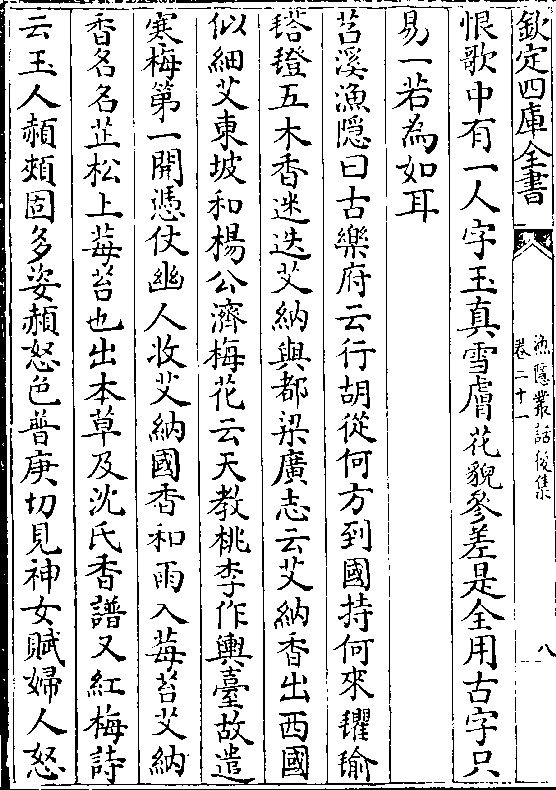 欽定四庫全書
漁隱叢話後集
卷二十一
八
恨歌中有一人字玉真雪膚花貌參差是全用古字只
易一若為如耳
苕溪漁隱曰古樂府云行胡從何方到國持何來㲲㲪
𣰅㲪五木香迷迭艾納與都梁廣志云艾納香出西國
似細艾東坡和楊公濟梅花云天教桃李作輿臺故遣
寒梅第一開憑仗幽人收艾納國香和雨入莓苔艾納
香名名芷松上莓苔也出本草及沈氏香譜又紅梅詩
云玉人頩頰固多姿頩怒色普庚切見神女賦婦人怒